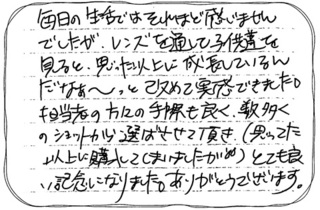 毎日の生活ではそれほど感じません
でしたが、レンズを通して子供達を
見ると、思った以上に成長しているん
だなぁ〜っと改めて実感できました。
担当者の方々の手際も良く、数多く
のショットから選ばさせて頂き、(思ってた
以上に購入してしまいましたが) とても良
い記念になりました。ありがとうございます。